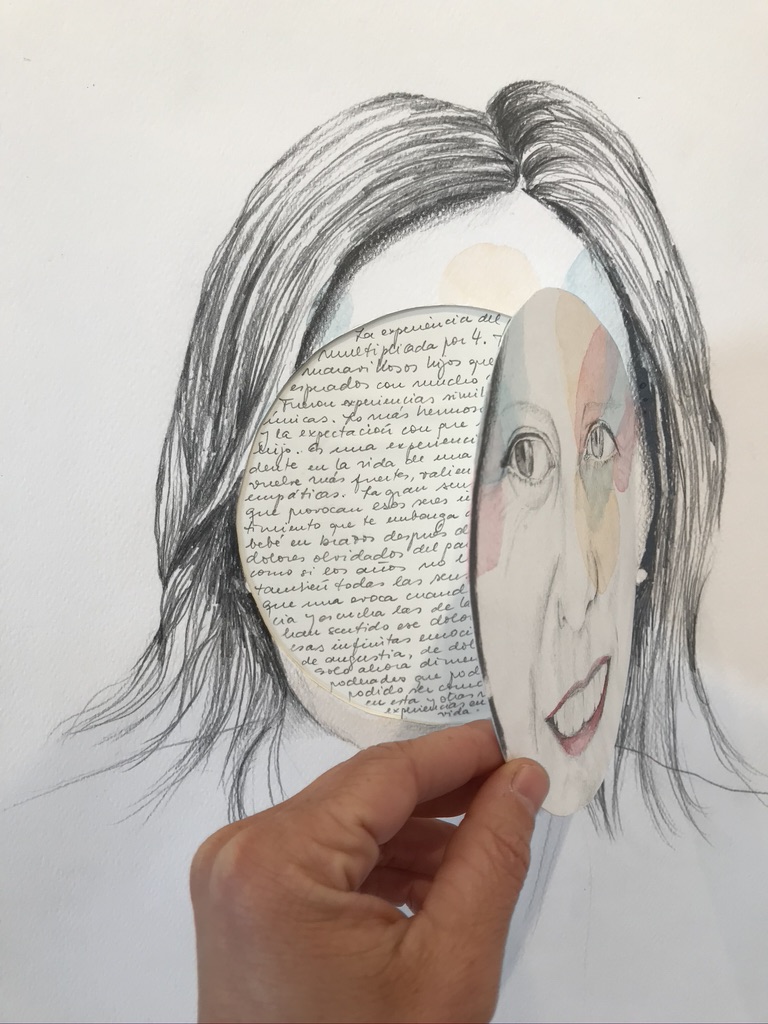 La experiencia del
multiplicada por 4.
maravillosos hijos que
esperados con mucho
Fueron experiencias simil
únicas. Lo más hermos
y la expectación con que
hijo. Es una experienci
dente en la vida de una
vuelve más fuertes, valien
empáticas. La gran sen
que provocan esos seres in
timiento que te embarga
bebé en brazos después d
dolores olvidados del pa
como si los años no
también todas las sens
que una evoca cuand
cia y escucha las de la
han sentido ese dolo
esas infinitas emoci
de angustia, de dol
solo ahora dimen
poderados que pod
podido ser como
en esta y otras
experiencias en
vida.